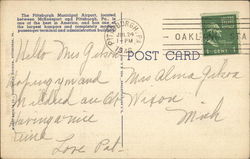 The Pittsburgh Municipal Airport, located
between McKeesport and Pittsburgh, Pa., is
one of the best in America, and has one of
the largest hangars and completely modern
passenger terminal and administration building.
PITTSBURGH, PA.
JUL 24
1-PM
OAKL
1 CENT 1
POST CARD
Hello Mrs Gibson
Hoping you and
Mildred are all
having a nice
time
Love Pat
Miss Alma Gibson
Wixom
Mich